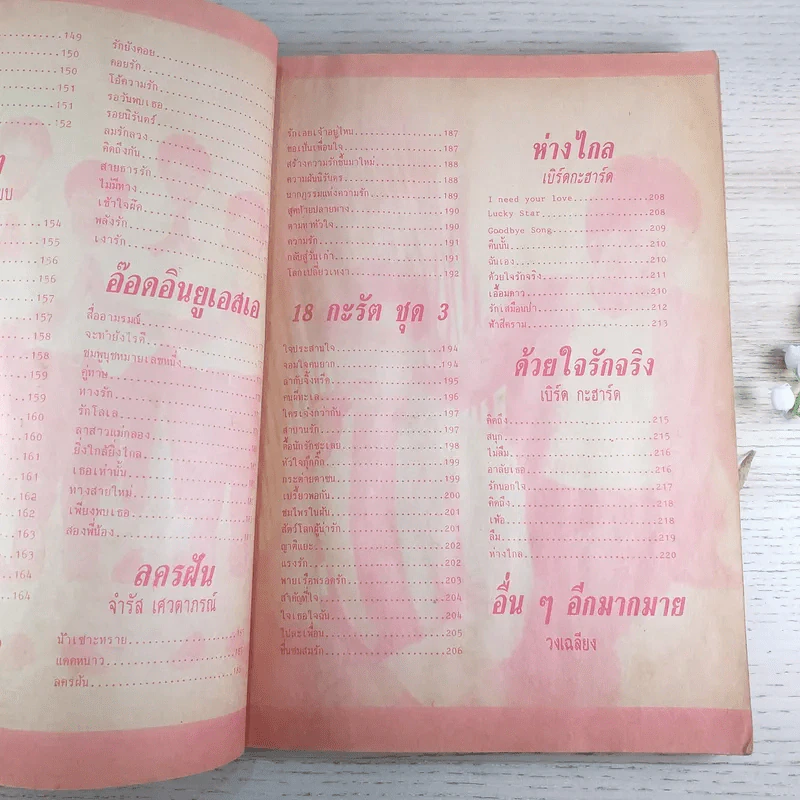 149
150
150
151
151
152
154
155
156
157
157
158
158
159
159
160
160
161
161
162
162
163
163
164
164
รักยังคอย
คอยรัก
โอ้ความรัก
รอวันพบเธอ
รอยนิรันดร์
ลมรักลวง
คิดถึงกัน
สายธารรัก
ไม่มีทาง
เข้าใจผิด
พลังรัก
เงารัก
อ๊อดอินยูเอสเอ
สื่ออารมณ์
จะทำยังไรดี
ชมพูนุชหมายเลขหนึ่ง
คู่ทาษ
ทางรัก
รักโลเล
ลาสาวแม่กลอง
ยิ่งใกล้ยิ่งไกล
เธอเท่านั้น
ทางสายใหม่
เพียงพบเธอ
สองพี่น้อง
ละครฝัน
จำรัส เศวตาภรณ์
น้ำเซาะทราย
แดดหนาว
ละครฝัน
รักเลกเจ้าอยู่ไหน 187
ขอเป็นเพื่อนใจ 187
สร้างความรักขึ้นมาใหม่ 188
ความฝันนิรันดร 188
นาฏกรรมแห่งความรัก 189
สุดท้ายปลายทาง 190
ตามหาหัวใจ 190
ความรัก 191
กลับสู่วันเก่า 191
โลกเปลี่ยวเหงา 192
18 กะรัต ชุด 3
ใจประสานใจ 194
จอมใจคนยาก 194
ลากับจิ้งหรีด 195
คนดีทะเล 196
ใครเจ๋งกว่ากัน 197
สาบานรัก 197
ดื้อนักรักซะเลย 198
หัวใจกุ๊กกิ๊ก 199
กระต่ายตาชน 199
เปรี้ยวพอกัน 200
ชมไพรในฝัน 201
สัตว์โลกผู้น่ารัก 201
ญาติแยะ 202
แรงรัก 202
พายเรือพรอดรัก 203
สำคัญที่ใจ 204
ใจเธอใจฉัน 204
ไปละเพื่อน 205
ชื่นชมสมรัก 206
ห่างไกล
เบิร์ดกะฮาร์ด
I need your love 208
Lucky Star 208
Goodbye Song 209
คืนนั้น 210
ฉันเอง 210
ด้วยใจรักจริง 211
เอื้อมดาว 210
รักเสมือนป่า 212
ฟ้าสีคราม 213
ด้วยใจรักจริง
เบิร์ด กะฮาร์ด
คิดถึง 215
สนุก 215
ไม่ลืม 216
อาลัยเธอ 216
รักนอกใจ 217
คิดถึง 218
เพ้อ 218
ลืม 219
ห่างไกล 220
อื่น ๆ อีกมากมาย
วงเฉลียง